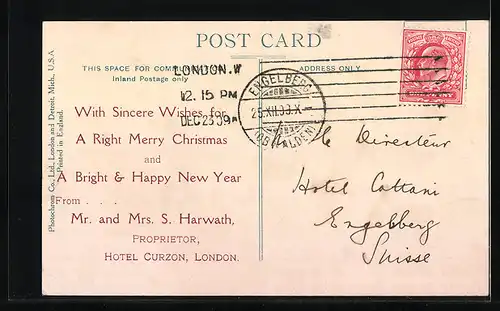 POST CARD
THIS SPACE FOR COMMUNICATION
Inland Postage only
ADDRESS ONLY
LONDON. W
12. 15 PM
DEC 23 09
ENGELBERG
25.XII.09.X-
(OBWALDEN)
With Sincere Wishes for
A Right Merry Christmas
and
A Bright & Happy New Year
From . . .
Mr. and Mrs. S. Harwath,
PROPRIETOR,
HOTEL CURZON, LONDON.
Photochrom Co., Ltd., London and Detroit, Mich., U.S.A.
Printed in England.
Le Directeur
Hotel Cattani
Engelberg
Suisse